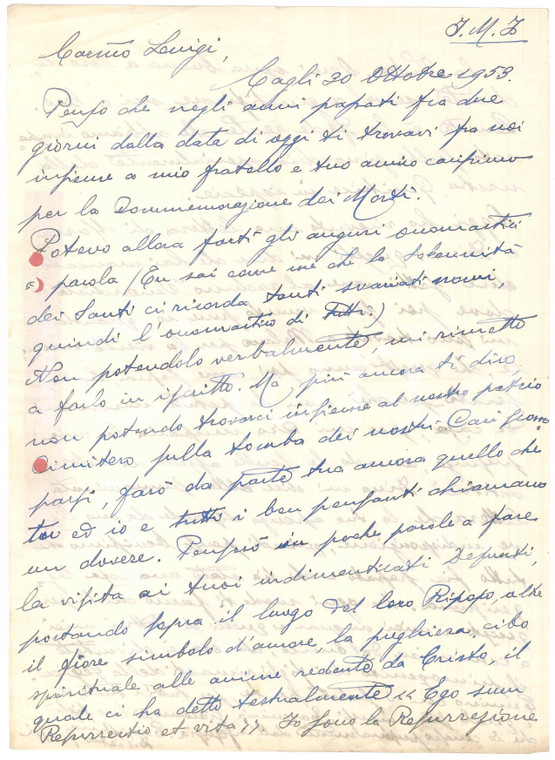 J.M.J
Carmo Luigi,
Cagli 20 Ottobre 1953.
Penso che negli anni passati fra due
giorni dalla data di oggi ti trovavi fra noi
insieme a mio fratello e tuo amico carissimo
per la Commemorazione dei Morti.
Potevo allora farti gli auguri onomastici
a parola (Tu sai come me che la Solennità
dei Santi ci ricorda tanti svariati nomi,
quindi l'onomastico di Tutti.)
Non potendolo verbalmente, mi rimetto
a farlo in iscritto. Ma, più ancora ti dico,
non potendo trovarci insieme al nostro patrio
Cimitero sulla tomba dei nostri Cari
passi, farò da parte tua ancora quello che
tu ed io e tutti i ben pensanti chiamano
un dovere. Penserò in poche parole a fare
la visita ai tuoi indimenticati Defunti,
portando sopra il luogo del loro Riposo, oltre
il fiore simbolo d'amore, la preghiera, cibo
spirituale alle anime redente da Cristo, il
quale ci ha detto testualmente << Ego sum
Resurrectio et vita >> Io sono la Resurrezione